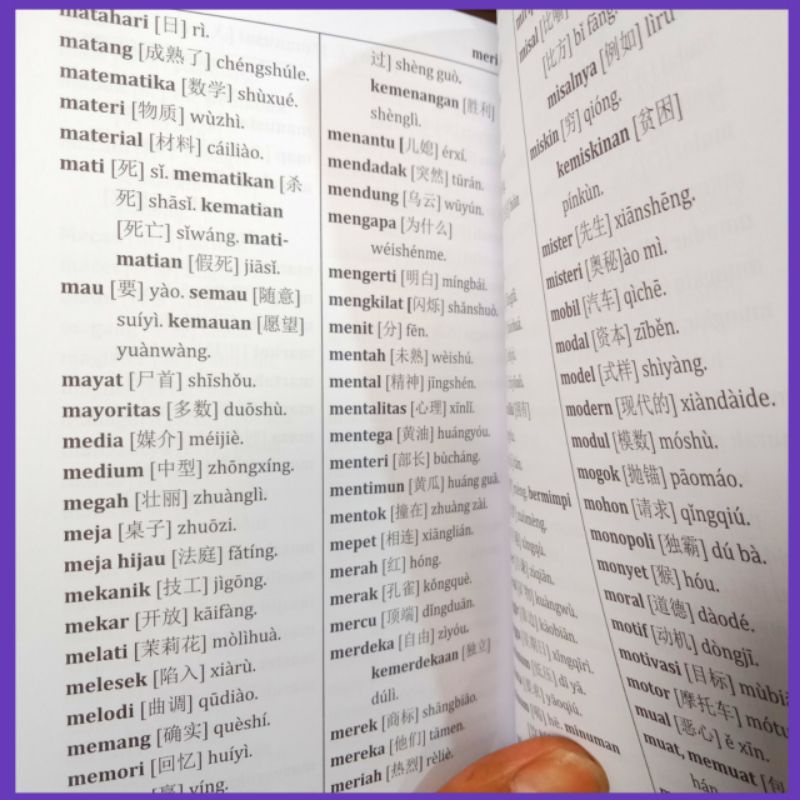 matahari [日] rì.
matang [成熟了] chéngshúle.
matematika [数学] shùxué.
materi [物质] wùzhì.
material [材料] cáiliào.
mati [死] sǐ. mematikan [杀
死] shāsǐ. kematian
[死亡] sǐwáng. mati-
matian [假死] jiāsǐ.
mau [要] yào. semau [随意]
suíyì. kemauan [愿望]
yuànwàng.
mayat [尸首] shīshǒu.
mayoritas [多数] duōshù.
media [媒介] méijiè.
medium [中型] zhōngxíng.
megah [壮丽] zhuànglì.
meja [桌子] zhuōzi.
meja hijau [法庭] fǎtíng.
mekanik [技工] jìgōng.
mekar [开放] kāifàng.
melati [茉莉花] mòlìhuà.
melesek [陷入] xiàrù.
melodi [曲调] qūdiào.
memang [确实] quèshí.
memori [回忆] huíyì.
yíng.
meri
过] shèng guò.
kemenangan [胜利]
shènglì.
menantu [儿媳] érxí.
mendadak [突然] tūrán.
mendung [乌云] wūyún.
mengapa [为什么]
wéishénme.
mengerti [明白] míngbái.
mengkilat [闪烁] shǎnshuò.
menit [分] fēn.
mentah [未熟] wèishú.
mental [精神] jīngshén.
mentalitas [心理] xīnlǐ.
mentega [黄油] huángyóu.
menteri [部长] bùcháng.
mentimun [黄瓜] huáng guā.
mentok [撞在] zhuàng zài.
mepet [相连] xiānglián.
merah [红] hóng.
merak [孔雀] kǒngquè.
mercu [顶端] dǐngduān.
merdeka [自由] zìyóu.
kemerdekaan [独立]
dúlì.
merek [商标] shāngbiāo.
mereka [他们] tāmen.
meriah [热烈] rèliè.
bermimpi
kuàngwù.
kǎobiān.
xīngqīrì.
dī yā.
yāoqiú.
hē. minuman
misal [比喻]
[比方] bǐ fāng.
misalnya [例如] lìrú
miskin [穷] qióng.
kemiskinan [贫困]
pínkùn.
mister [先生] xiānshēng.
misteri [奥秘]ào mì.
mobil [汽车] qìchē.
modal [资本] zīběn.
model [式样] shìyàng.
modern [现代的] xiàndàide.
modul [模数] móshù.
mogok [抛锚] pāomáo.
mohon [请求] qǐngqiú.
monopoli [独霸] dú bà.
monyet [猴] hóu.
moral [道德] dàodé.
motif [动机] dòngjī.
motivasi [目标] mùbiā
motor [摩托车] mótu
mual [恶心] ě xīn.
muat, memuat [包
hán.